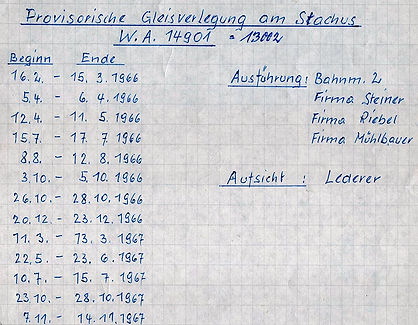 Provisorische Gleisverlegung am Stachus
W.A. 14901 = 13002
Beginn Ende
16.2. - 15. 3. 1966
5.4. - 6. 4. 1966
12.4. - 11. 5. 1966
15.7. - 17. 7. 1966
8.8. - 12. 8. 1966
3.10. - 5.10. 1966
26.10. - 28.10. 1966
20.12. - 23.12. 1966
11. 3. - 13. 3. 1967
22.5. - 23. 6. 1967
10.7. - 15. 7. 1967
23.10. - 28.10. 1967
7.11. - 14.11. 1967
Ausführung: Bahnm. 2
Firma Steiner
Firma Riebel
Firma Mühlbauer
Aufsicht : Lederer